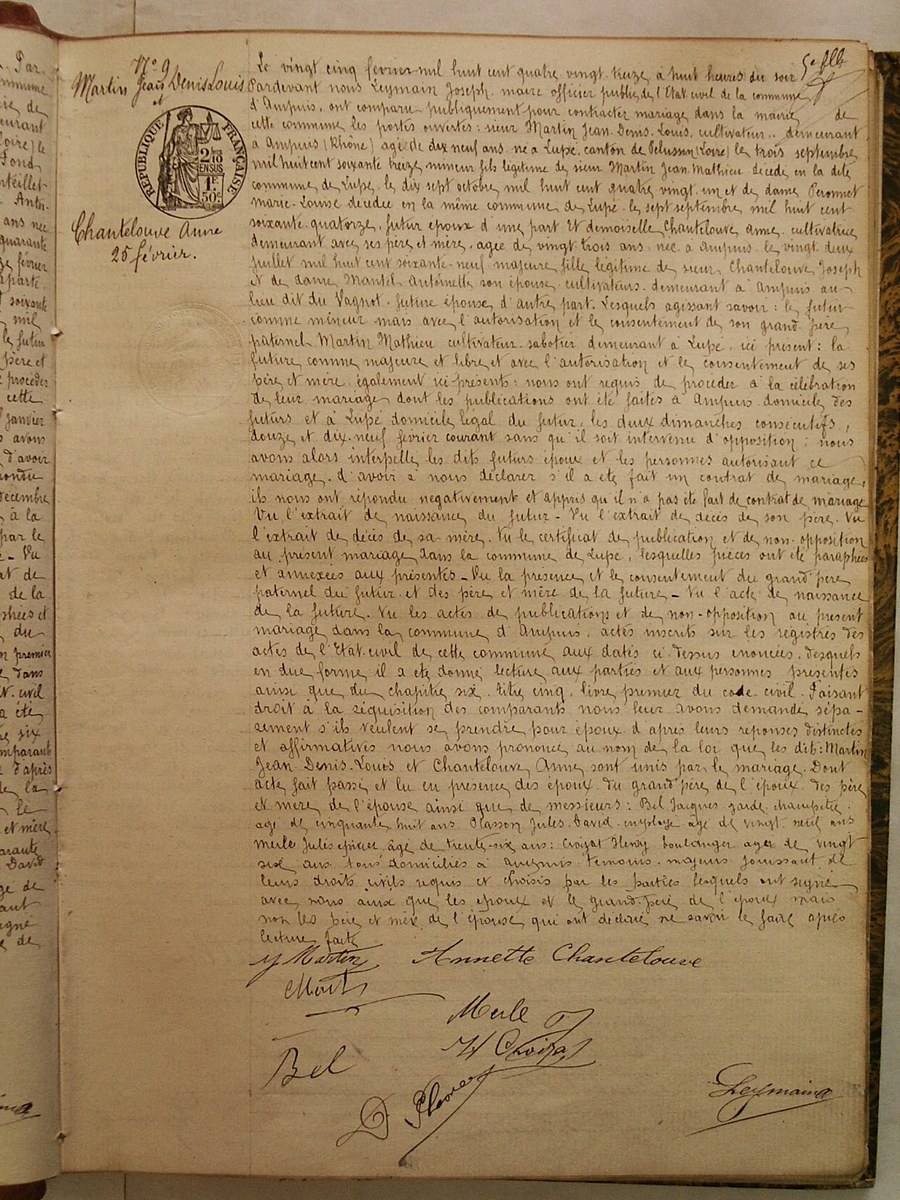 N° 9
Martin Jean Denis Louis
et
RÉPUBLIQUE FRANÇAISE
2/10
EN SUS
1F
50c
Chantelouve Anne
25 février.
5e flle
Le vingt cinq février mil huit cent quatre vingt treize à huit heures du soir
Pardevant nous Leymain Joseph, maire officier public de l'Etat civil de la commune
d'Ampuis, ont comparu publiquement pour contracter mariage dans la mairie de
cette commune les portes ouvertes: sieur Martin Jean Denis Louis, cultivateur demeurant
à Ampuis (Rhône) agé de dix neuf ans né à Lupé canton de Pelussin (Loire) le trois septembre
mil huit cent soixante treize mineur fils légitime de sieur Martin Jean Mathieu décédé en la dite
commune de Lupé, le dix sept octobre mil huit cent quatre vingt un et de dame Peronnet
marie Louise décédée en la même commune de Lupé le sept septembre mil huit cent
soixante quatorze, futur époux d'une part Et demoiselle Chantelouve Anne cultivatrice
demeurant avec ses père et mère, agée de vingt trois ans née à Ampuis le vingt deux
juillet mil huit cent soixante neuf majeure fille légitime de sieur Chantelouve Joseph
et de dame Mantel Antoinette son épouse cultivateurs demeurant à Ampuis au
lieu dit du Vagnot future épouse d'autre part. Lesquels agissant savoir: le futur
comme mineur mais avec l'autorisation et le consentement de son grand père
paternel Martin Mathieu cultivateur sabotier demeurant à Lupé, ici présent: la
future comme majeure et libre et avec l'autorisation et le consentement de ses
père et mère également ici présents: nous ont requis de procéder à la célébration
de leur mariage dont les publications ont été faites à Ampuis domicile des
futurs et à Lupé domicile légal du futur, les deux dimanches consécutifs,
douze et dix neuf février courant sans qu'il soit intervenu d'opposition; nous
avons alors interpellé les dits futurs époux et les personnes autorisant ce
mariage, d'avoir à nous déclarer s'il a été fait un contrat de mariage,
ils nous ont répondu negativement et appris qu'il n'a pas été fait de contrat de mariage
Vu l'extrait de naissance du futur - Vu l'extrait de décès de son père. Vu
l'extrait de décès de sa mère. Vu le certificat de publication et de non-opposition
au présent mariage dans la commune de Lupé, lesquelles pièces ont été paraphées
et annexées aux présentes - Vu la présence et le consentement du grand père
paternel du futur et des père et mère de la future - Vu l'acte de naissance
de la future. Vu les actes de publications et de non-opposition au présent
mariage dans la commune d'Ampuis, actes inscrits sur les registres des
actes de l'Etat civil de cette commune aux dates ci dessus énoncées, desquels
en due forme il a été donné lecture aux parties et aux personnes présentes
ainsi que du chapitre six, titre cinq, livre premier du code civil. Faisant
droit à la réquisition des comparants nous leur avons demandé sépa-
rement s'ils veulent se prendre pour époux d'après leurs réponses distinctes
et affirmatives nous avons prononcé au nom de la loi que les dits: Martin
Jean Denis Louis et Chantelouve Anne sont unis par le mariage. Dont
acte fait passé et lu en présence des époux, du grand père de l'époux des père
et mère de l'épouse ainsi que de messieurs: Bel Jacques garde champêtre
agé de cinquante huit ans Jules David employé agé de vingt neuf ans
Merle Jules épicier âgé de trente-six ans: Croizat Henry boulanger ager de vingt
six ans tous domiciliés à Ampuis témoins majeurs jouissant de
leurs droits civils requis et choisis par les parties lesquels ont signé
avec nous ainsi que les époux et le grand père de l'époux mais
non les père et mère de l'épouse qui ont déclaré ne savoir le faire après
lecture faite
J Martin Annette Chantelouve
Merle
H Croizat
Bel
D
Leymain